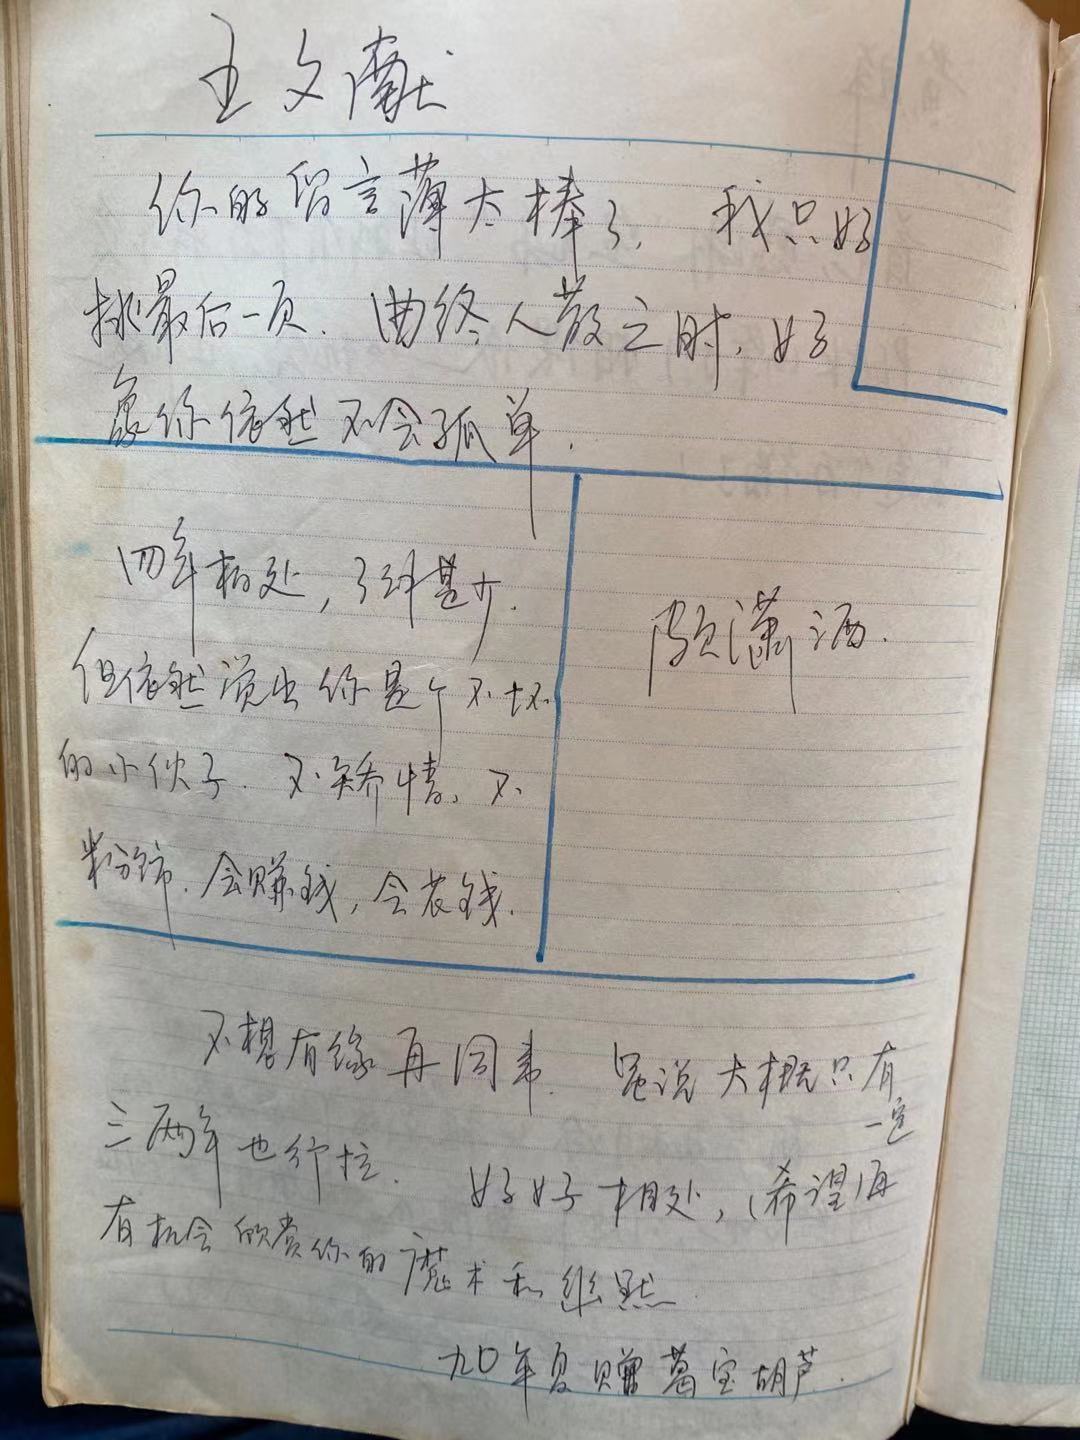 王文献
你的留言薄太棒了，我只好
挑最后一页．曲终人散之时，好
象你依然不会孤单．
四年相处，了解甚少．
但依然觉出你是个不坏
的小伙子．不矫情、不
粉饰．会赚钱，会花钱．
颇潇洒．
不想有缘再同事．虽说大概只有
三两年也行拉．好好相处，希望再
一定
有机会欣赏你的魔术和幽默
九〇年夏赠葛宝葫芦．